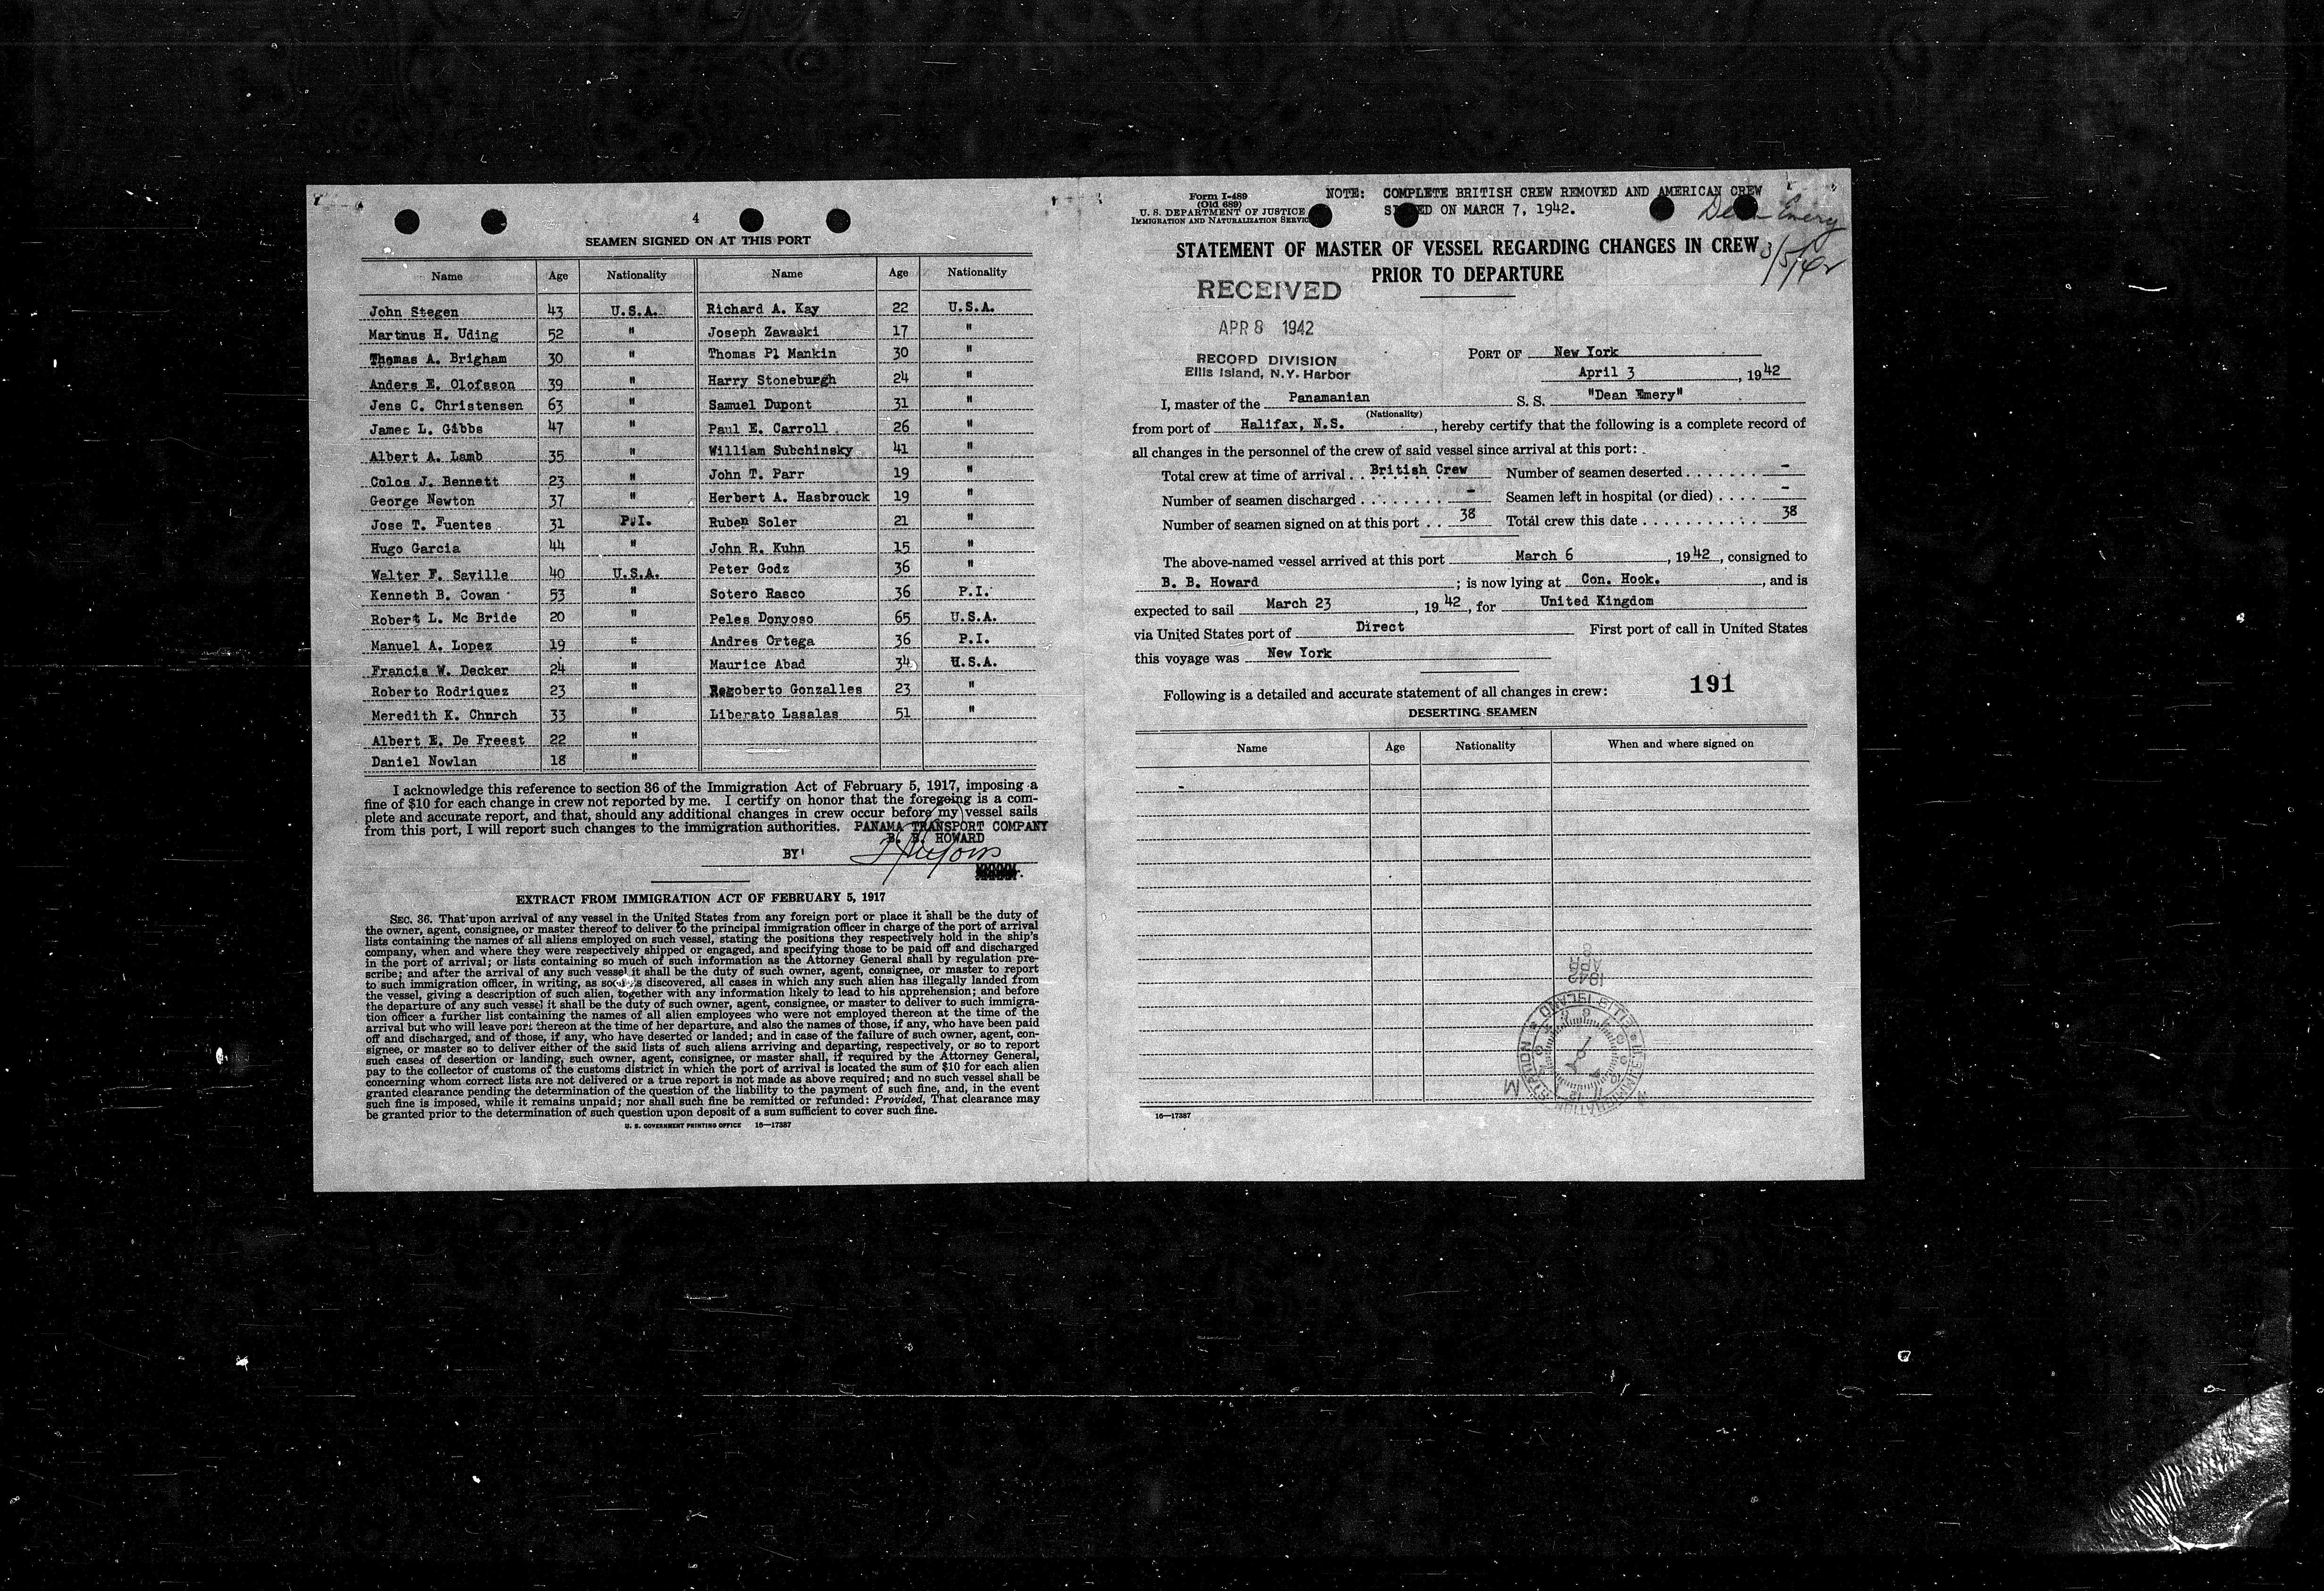 4
SEAMEN SIGNED ON AT THIS PORT
Name Age Nationality Name Age Nationality
John Stegen 43 U.S.A. Richard A. Kay 22 U.S.A.
Martnus H. Uding 52 " Joseph Zawaski 17 "
Thomas A. Brigham 30 " Thomas Pl Mankin 30 "
Anders E. Olofsson 39 " Harry Stoneburgh 24 "
Jens C. Christensen 63 " Samuel Dupont 31 "
James L. Gibbs 47 " Paul E. Carroll 26 "
Albert A. Lamb 35 " William Subchinsky 41 "
Colos J. Bennett 23 " John T. Parr 19 "
George Newton 37 " Herbert A. Hasbrouck 19 "
Jose T. Fuentes 31 P.I. Ruben Soler 21 "
Hugo Garcia 44 " John R. Kuhn 15 "
Walter F. Saville 40 U.S.A. Peter Godz 36 "
Kenneth B. Cowan 53 " Sotero Rasco 36 P.I.
Robert L. Mc Bride 20 " Peles Donyoso 65 U.S.A.
Manuel A. Lopez 19 " Andres Ortega 36 P.I.
Francis W. Decker 24 " Maurice Abad 34 U.S.A.
Roberto Rodriquez 23 " Regoberto Gonzalles 23 "
Meredith K. Church 33 " Liberato Lasalas 51 "
Albert E. De Freest 22 "
Daniel Nowlan 18 "
I acknowledge this reference to section 36 of the Immigration Act of February 5, 1917, imposing a
fine of $10 for each change in crew not reported by me. I certify on honor that the foregoing is a com-
plete and accurate report, and that, should any additional changes in crew occur before my vessel sails
from this port, I will report such changes to the immigration authorities. PANAMA TRANSPORT COMPANY
B. B. HOWARD
BY
EXTRACT FROM IMMIGRATION ACT OF FEBRUARY 5, 1917
SEC. 36. That upon arrival of any vessel in the United States from any foreign port or place it shall be the duty of
the owner, agent, consignee, or master thereof to deliver to the principal immigration officer in charge of the port of arrival
lists containing the names of all aliens employed on such vessel, stating the positions they respectively hold in the ship's
company, when and where they were respectively shipped or engaged, and specifying those to be paid off and discharged
in the port of arrival; or lists containing so much of such information as the Attorney General shall by regulation pre-
scribe; and after the arrival of any such vessel it shall be the duty of such owner, agent, consignee, or master to report
to such immigration officer, in writing, as soon as discovered, all cases in which any such alien has illegally landed from
the vessel, giving a description of such alien, together with any information likely to lead to his apprehension; and before
the departure of any such vessel it shall be the duty of such owner, agent, consignee, or master to deliver to such immigra-
tion officer a further list containing the names of all alien employees who were not employed thereon at the time of the
arrival but who will leave port thereon at the time of her departure, and also the names of those, if any, who have been paid
off and discharged, and of those, if any, who have deserted or landed; and in case of the failure of such owner, agent, con-
signee, or master so to deliver either of the said lists of such aliens arriving and departing, respectively, or so to report
such cases of desertion or landing, such owner, agent, consignee, or master shall, if required by the Attorney General,
pay to the collector of customs of the customs district in which the port of arrival is located the sum of $10 for each alien
concerning whom correct lists are not delivered or a true report is not made as above required; and no such vessel shall be
granted clearance pending the determination of the question of the liability to the payment of such fine, and, in the event
such fine is imposed, while it remains unpaid; nor shall such fine be remitted or refunded: Provided, That clearance may
be granted prior to the determination of such question upon deposit of a sum sufficient to cover such fine.
U. S. GOVERNMENT PRINTING OFFICE 16—17387
Form I-489
(Old 689)
U. S. DEPARTMENT OF JUSTICE
IMMIGRATION AND NATURALIZATION SERVICE
NOTE: COMPLETE BRITISH CREW REMOVED AND AMERICAN CREW
SIGNED ON MARCH 7, 1942.
Dean Emery
3/5/42
STATEMENT OF MASTER OF VESSEL REGARDING CHANGES IN CREW
PRIOR TO DEPARTURE
RECEIVED
APR 8 1942
RECORD DIVISION
Ellis Island, N.Y. Harbor
PORT OF New York
April 3, 1942
I, master of the Panamanian S. S. "Dean Emery"
(Nationality)
from port of Halifax, N.S., hereby certify that the following is a complete record of
all changes in the personnel of the crew of said vessel since arrival at this port:
Total crew at time of arrival . . British Crew Number of seamen deserted . . . . . . . -
Number of seamen discharged . . . . . . . . - Seamen left in hospital (or died) . . . . -
Number of seamen signed on at this port . . 38 Total crew this date . . . . . . . . . . . 38
The above-named vessel arrived at this port March 6, 1942, consigned to
B. B. Howard; is now lying at Con. Hook., and is
expected to sail March 23, 1942, for United Kingdom
via United States port of Direct First port of call in United States
this voyage was New York
Following is a detailed and accurate statement of all changes in crew: 191
DESERTING SEAMEN
Name Age Nationality When and where signed on
-
1942
APR
8
ELLIS ISLAND
IMMIGRATION STATION
M
16—17387